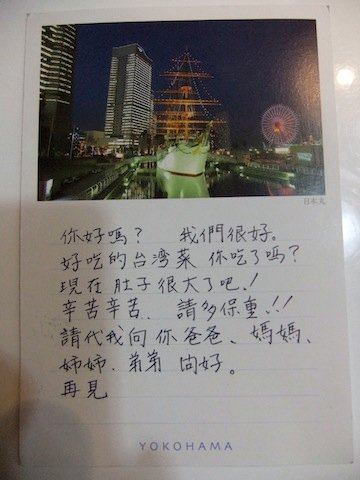 日本丸
你好嗎? 我們很好。
好吃的台湾菜 你吃了嗎?
現在 肚子很大了吧!
辛苦辛苦、請多保重!!
請代我向 你爸爸、媽媽、
姉姉、弟弟 向好。
再見
YOKOHAMA